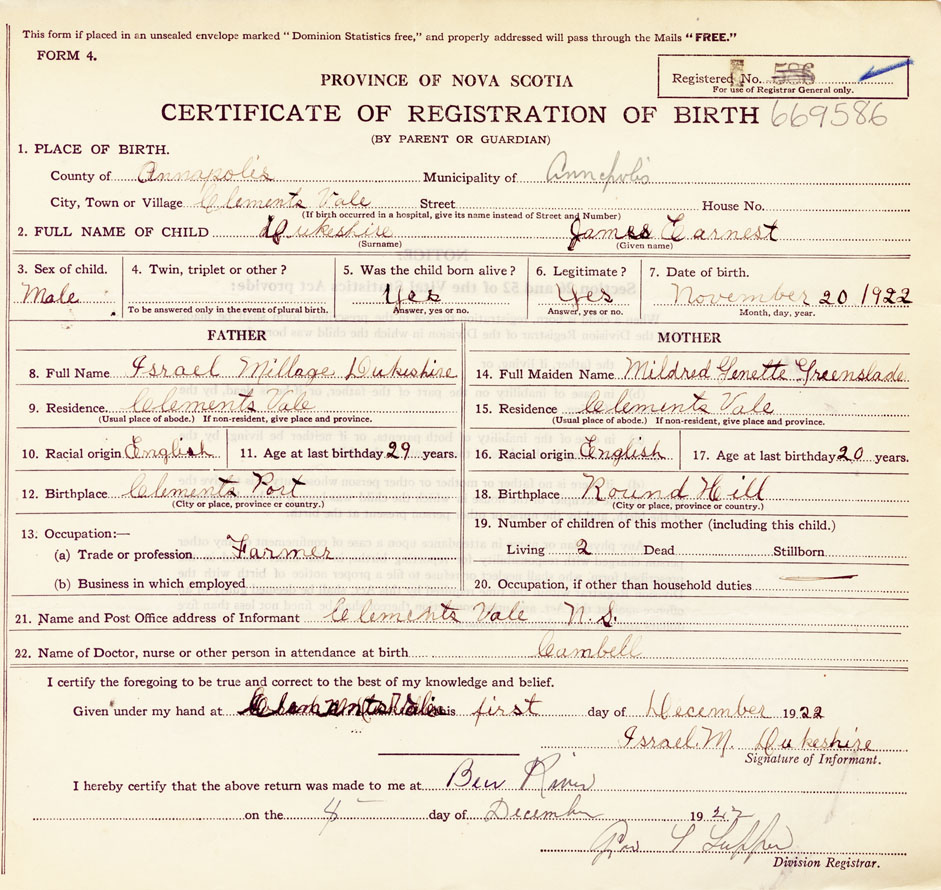 This form if placed in an unsealed envelope marked "Dominion Statistics free," and properly addressed will pass through the Mails "FREE."
FORM 4.
Registered No. 586
For use of Registrar General only.
PROVINCE OF NOVA SCOTIA
CERTIFICATE OF REGISTRATION OF BIRTH 669586
(BY PARENT OR GUARDIAN)
1. PLACE OF BIRTH.
County of Annapolis Municipality of Annapolis
City, Town or Village Clements Vale Street House No.
(If birth occurred in a hospital, give its name instead of Street and Number)
2. FULL NAME OF CHILD Dukeshire James Earnest
(Surname) (Given name)
3. Sex of child. 4. Twin, triplet or other? 5. Was the child born alive? 6. Legitimate? 7. Date of birth.
Male Yes Yes November 20 1922
To be answered only in the event of plural birth. Answer, yes or no. Answer, yes or no. Month, day, year.
FATHER MOTHER
8. Full Name Israel Millage Dukeshire 14. Full Maiden Name Mildred Genette Greenslade
9. Residence. Clements Vale 15. Residence Clements Vale
(Usual place of abode.) If non-resident, give place and province. (Usual place of abode.) If non-resident, give place and province.
10. Racial origin English 11. Age at last birthday 29 years. 16. Racial origin English 17. Age at last birthday 20 years.
12. Birthplace Clements Port 18. Birthplace Round Hill
(City or place, province or country.) (City or place, province or country.)
13. Occupation:— 19. Number of children of this mother (including this child.)
(a) Trade or profession Farmer Living 2 Dead Stillborn
(b) Business in which employed 20. Occupation, if other than household duties
21. Name and Post Office address of Informant Clements Vale N.S.
22. Name of Doctor, nurse or other person in attendance at birth Cambell
I certify the foregoing to be true and correct to the best of my knowledge and belief.
Given under my hand at this first day of December 1922
Israel. M. Dukeshire
Signature of Informant.
I hereby certify that the above return was made to me at Bear River
on the day of December 1922
Division Registrar.